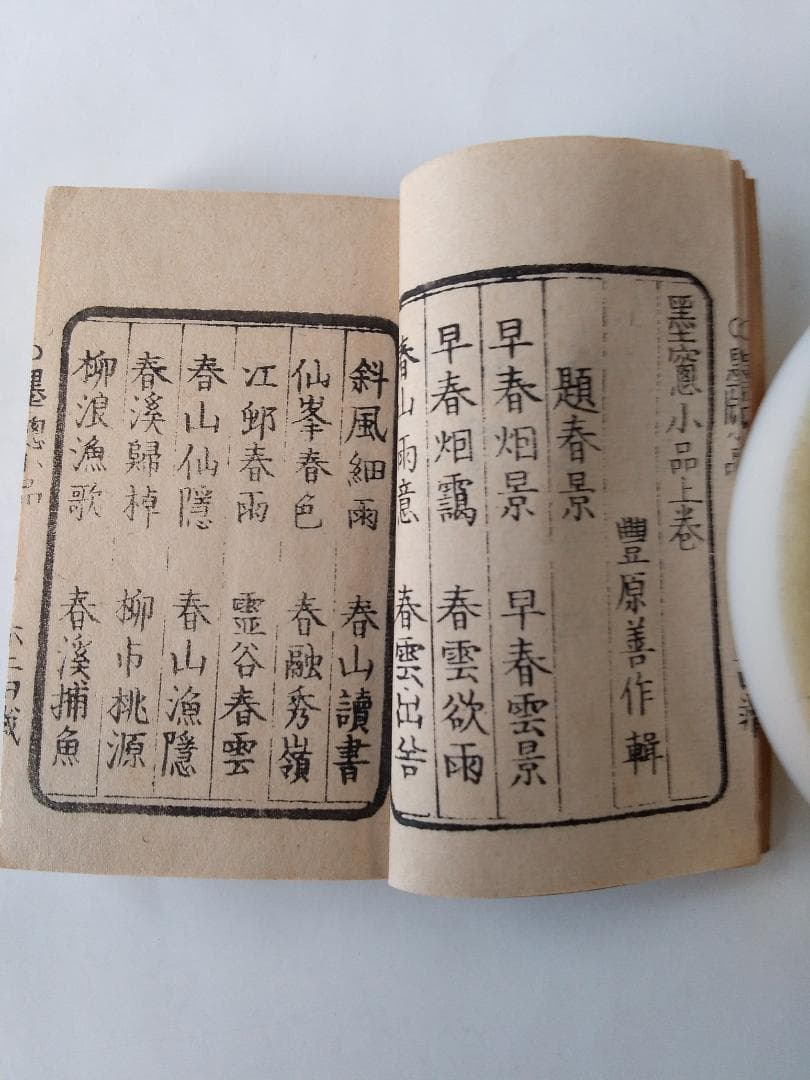 墨窻小品上卷
豐原善作輯
題春景
早春烟景　早春雲景
早春烟靄　春雲欲雨
春山雨意　春雲出谷
斜風細雨　春山讀書
仙峯春色　春融秀嶺
江邨春雨　靈谷春雲
春山仙隱　春山漁隱
春溪歸棹　柳市桃源
柳浪漁歌　春溪捕魚